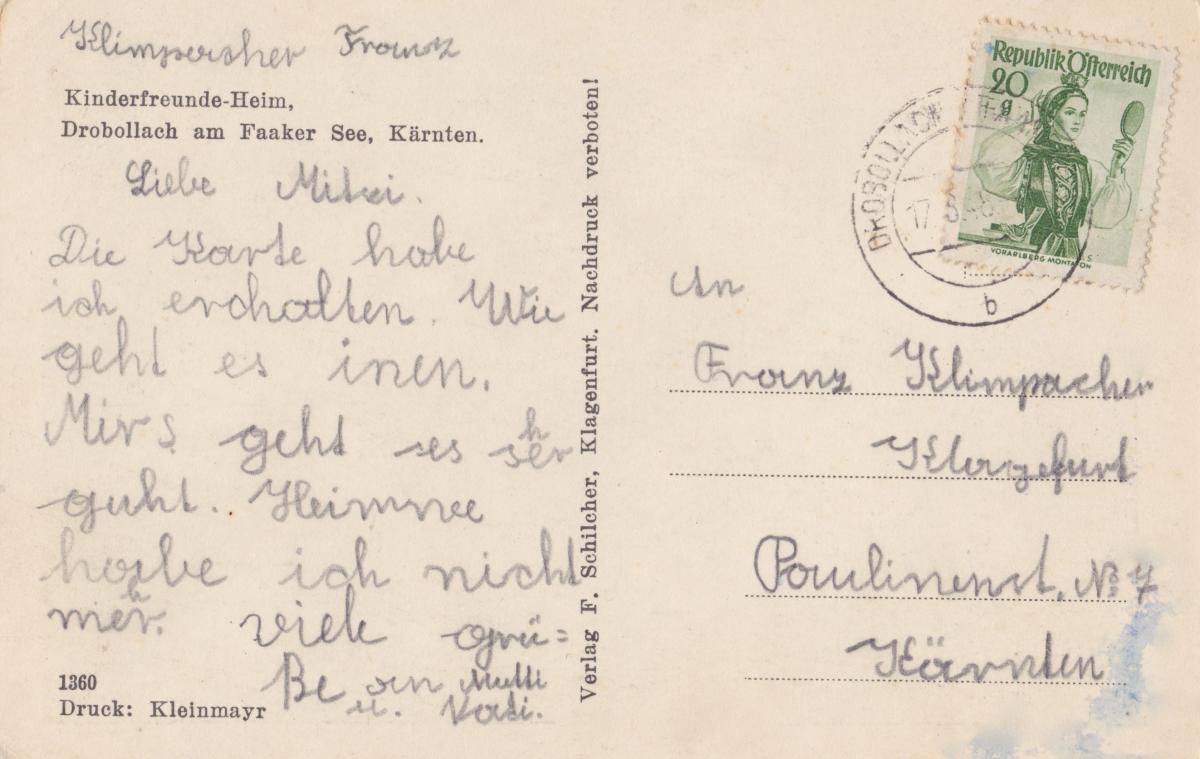 Klimpacher Franz
Kinderfreunde-Heim,
Drobollach am Faaker See, Kärnten.
Liebe Mitzi.
Die Karte habe
ich erchalten. Wie
geht es inen.
Mir s geht es sehr
guht. Heimwee
habe ich nicht
mehr. viele grü=
Be an Mutti
u. Vati.
1360
Druck: Kleinmayr
Verlag F. Schilcher, Klagenfurt. Nachdruck verboten!
Republik Österreich
20
g
VORARLBERG MONTAFON
DROBOLLACH
17
b
An
Franz Klimpacher
Klagefurt
Paulinenst. No 7
Kärnten